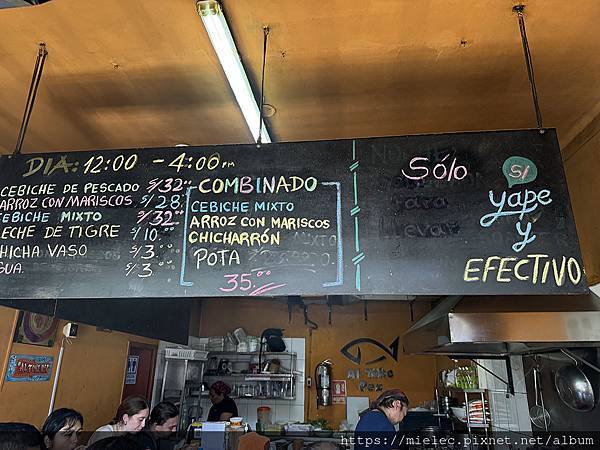 DIA: 12:00 - 4:00 PM
CEBICHE DE PESCADO S/32.00
ARROZ CON MARISCOS S/28.
CEBICHE MIXTO S/32.00
LECHE DE TIGRE S/10.00
CHICHA VASO S/3.00
AGUA S/3.00
COMBINADO
CEBICHE MIXTO
ARROZ CON MARISCOS
CHICHARRÓN
POTA
35.00
Sólo
S/
yape
y
EFECTIVO
Al Toke
Pez
https://mielec.pixnet.net/album